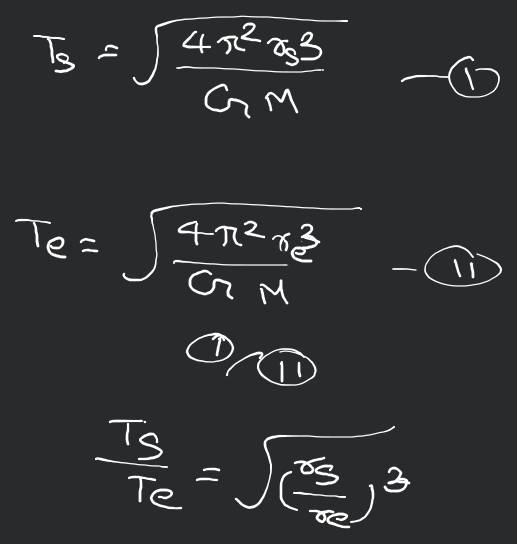 Ts = √(4π² rs³ / GM) —(I)
Te = √(4π² re³ / GM) —(II)
(I)/(II)
Ts/Te = √(rs/re)³